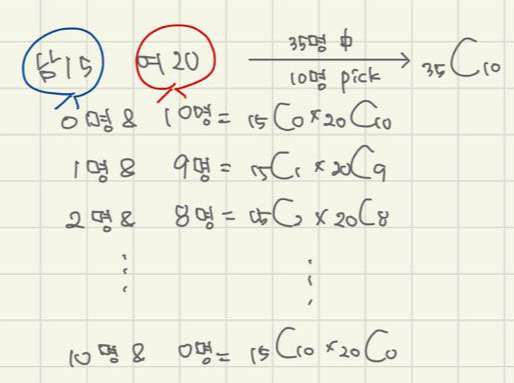 남15 여20 35명 中 10명 pick 35C10
0명 & 10명 = 15C0 × 20C10
1명 & 9명 = 15C1 × 20C9
2명 & 8명 = 15C2 × 20C8
⋮ ⋮
10명 & 0명 = 15C10 × 20C0